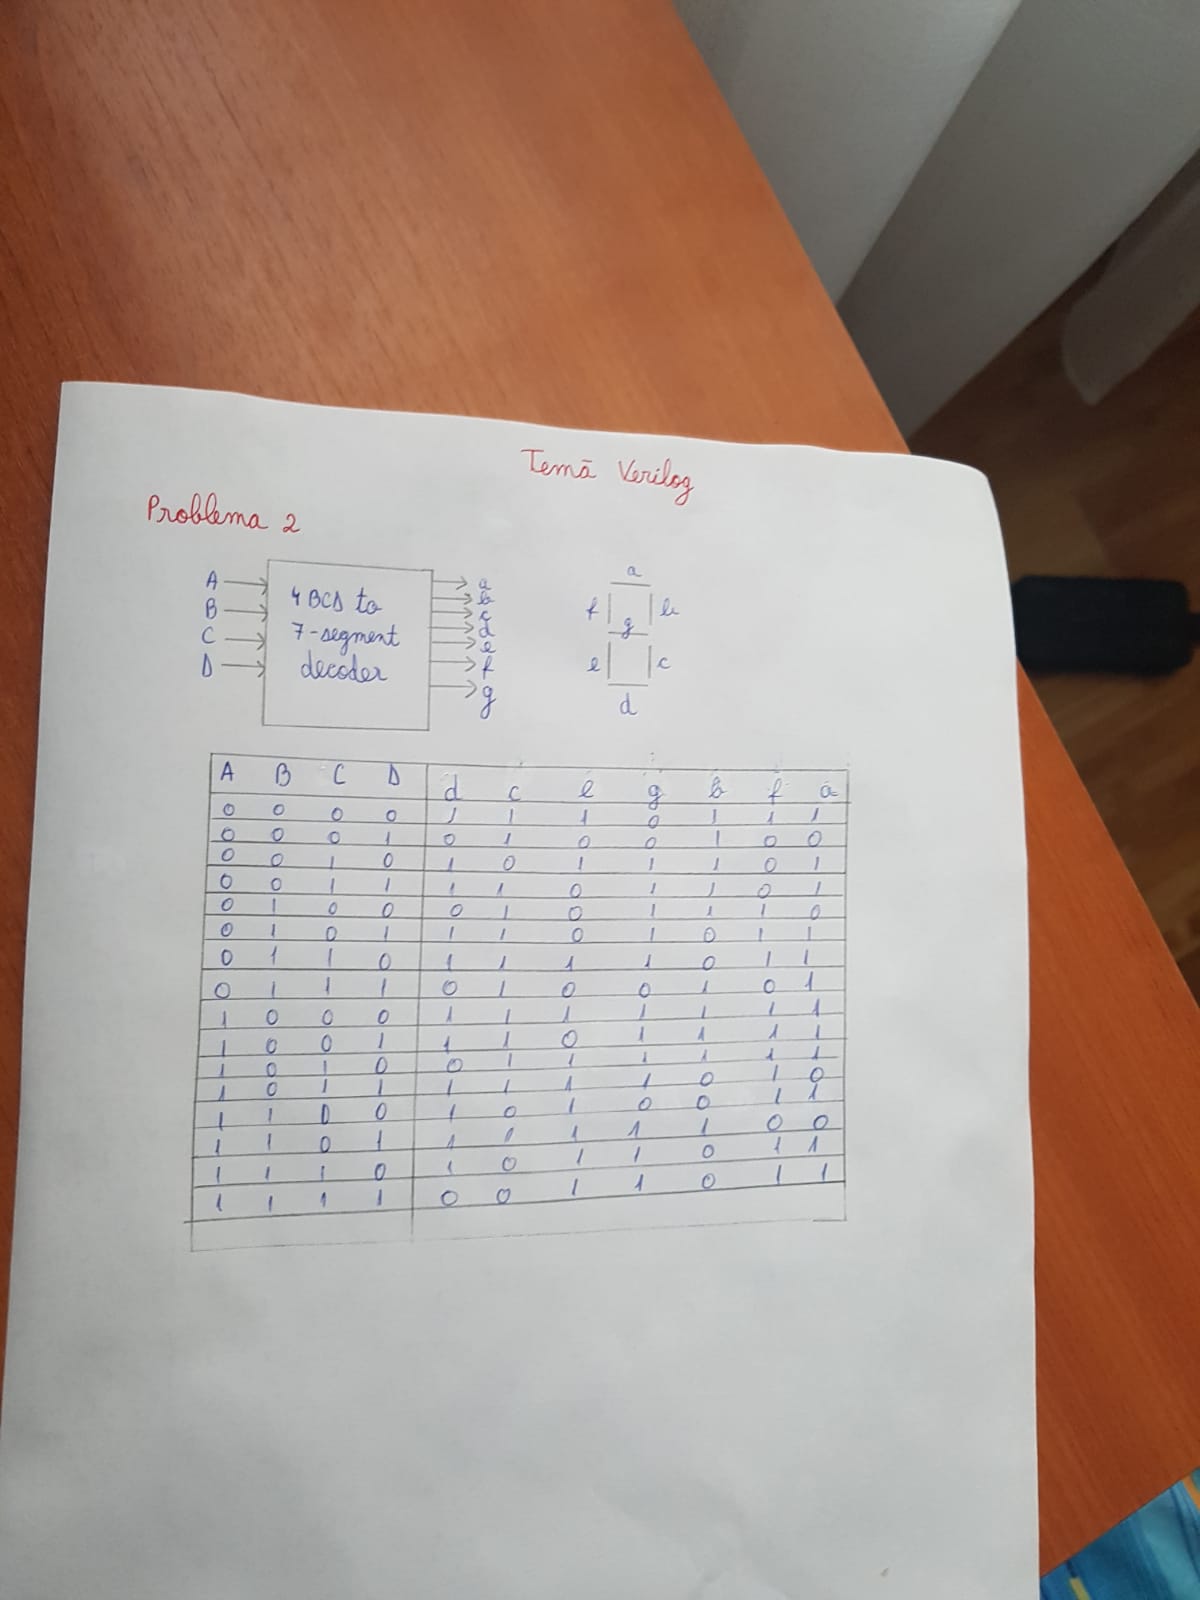 Temă Verilog
Problema 2
A
B
C
D
4 BCD to
7-segment
decoder
a
b
c
d
e
f
g
a
f b
g
e c
d
A B C D d c e g b f a
0 0 0 0 1 1 1 0 1 1 1
0 0 0 1 0 1 0 0 1 0 0
0 0 1 0 1 0 1 1 1 0 1
0 0 1 1 1 1 0 1 1 0 1
0 1 0 0 0 1 0 1 1 1 0
0 1 0 1 1 1 0 1 0 1 1
0 1 1 0 1 1 1 1 0 1 1
0 1 1 1 0 1 0 0 1 0 1
1 0 0 0 1 1 1 1 1 1 1
1 0 0 1 1 1 0 1 1 1 1
1 0 1 0 0 1 1 1 1 1 1
1 0 1 1 1 1 1 1 0 1 0
1 1 0 0 1 0 1 0 0 1 1
1 1 0 1 1 1 1 1 1 0 0
1 1 1 0 1 0 1 1 0 1 1
1 1 1 1 0 0 1 1 0 1 1